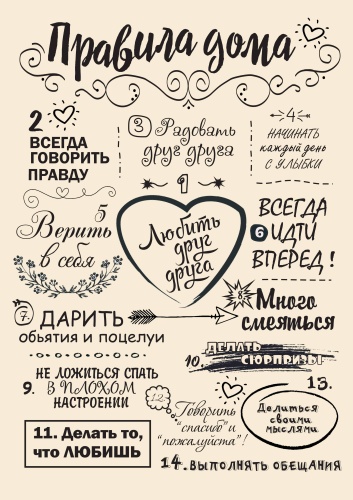 Правила дома
2
ВСЕГДА
ГОВОРИТЬ
ПРАВДУ
3 Радовать
друг друга
4
НАЧИНАТЬ
каждый день
С УЛЫБКИ
1
Любить
друг
друга
5
Верить
в себя
ВСЕГДА
6 ИДТИ
ВПЕРЕД!
7. ДАРИТЬ
объятия и поцелуи
8. Много
смеяться
9. НЕ ЛОЖИТЬСЯ СПАТЬ
В ПЛОХОМ
НАСТРОЕНИИ
10. ДЕЛАТЬ
СЮРПРИЗЫ
11. Делать то,
что ЛЮБИШЬ
12. Говорить
"спасибо" и
"пожалуйста"!
13.
Делиться
своими
мыслями
14. ВЫПОЛНЯТЬ ОБЕЩАНИЯ